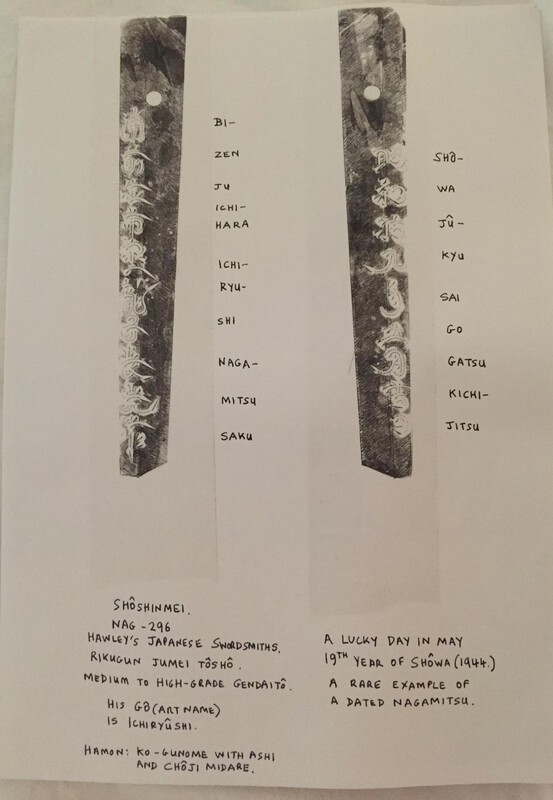 BI-
ZEN
JU
ICHI-
HARA
ICHI-
RYU-
SHI
NAGA-
MITSU
SAKU
SHÔ-
WA
JÛ-
KYU
SAI
GO
GATSU
KICHI-
JITSU
SHÔSHINMEI.
NAG-296
HAWLEY'S JAPANESE SWORDSMITHS.
RIKUGUN JUMEI TÔSHÔ.
MEDIUM TO HIGH-GRADE GENDAITÔ.
HIS GÔ (ART NAME)
IS ICHIRYÛSHI.
HAMON: KO-GUNOME WITH ASHI
AND CHÔJI MIDARE.
A LUCKY DAY IN MAY
19TH YEAR OF SHÔWA (1944.)
A RARE EXAMPLE OF
A DATED NAGAMITSU.